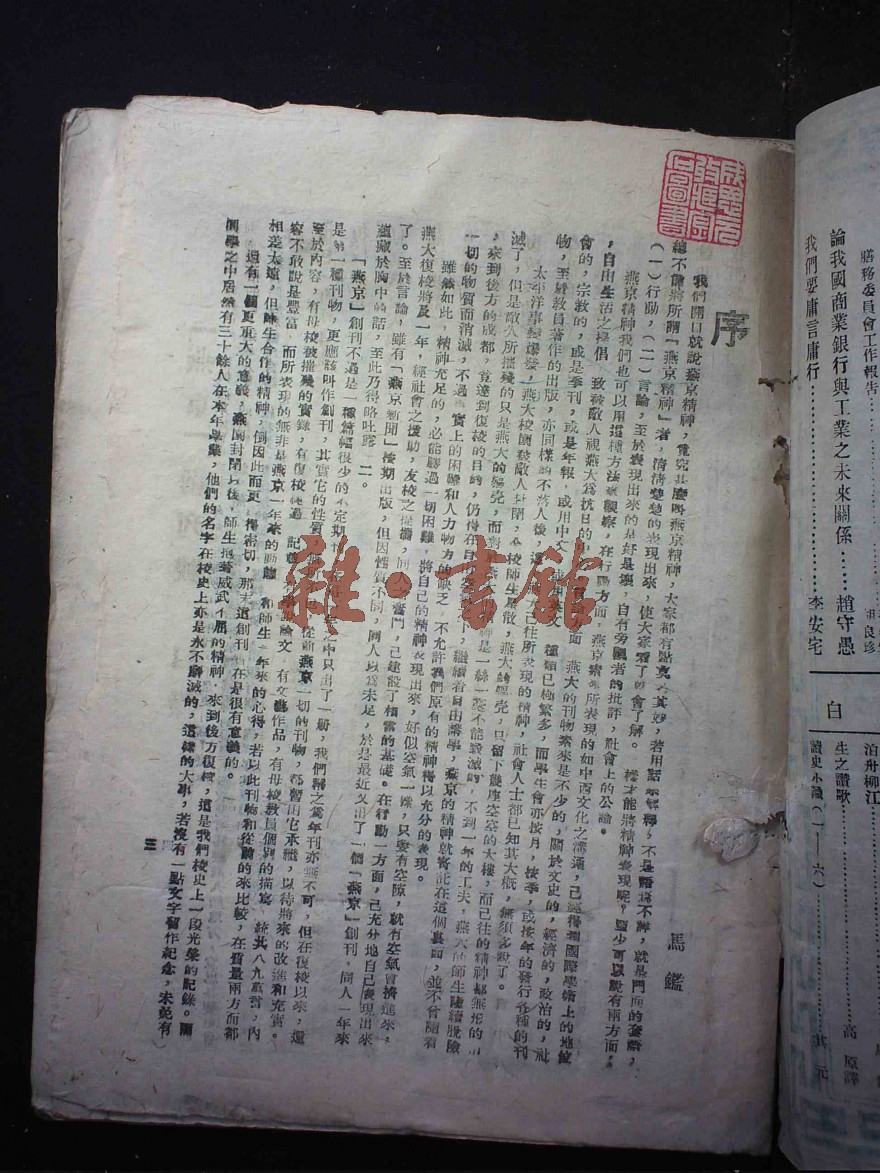 序
馮鑑
我們開口就說燕京精神,究竟甚麼叫燕京精神,大家都有點莫其妙,若用話來解釋,不是語焉不詳,就是門面的套語,
總不能將所謂「燕京精神」者,清清楚楚的表現出來,使大家看了會了解。樣才能將精神表現呢?至少可以說有兩方面,
(一)行動,(二)言論,至於表現出來的是好是壞,自有旁觀者的批評,社會上的公論。
燕京精神我們也可以用這種方法來觀察,在行動方面,燕京素來所表現的如中西文化之溝通,已經得到國際學術上的地位
,自由生活之提倡,致被敵人視燕大為抗日的言論方面,燕大的刊物素來是不少的,關於文史的,經濟的,政治的,社
會的,宗教的,或是季刊,或是年報,或用中文,種類已極繁多,而學生會亦按月,按季,或按年的發行各種的刊
物,至於教員著作的出版,亦同樣的不落人後,這已往所表現的精神,社會人士都已知其大概,無須多說了。
太平洋事變爆發,燕大校園被敵人封閉,全校師生星散,燕大的軀壳,只留下幾座空空的大樓,而已往的精神都無形的消
滅了,但是敵人所摧殘的只是燕大的軀壳,而對是一絲一毫不能毀滅的,不到一年的工夫,燕大的師生陸續脫險
,來到後方的成都,竟達到復校的目的,仍得在自由繼續着自由講學,燕京的精神就寄託在這個裏面,並不曾隨着
一切的物質而消滅,不過實上的困難和人力物力的缺乏,不允許我們原有的精神得以充分的表現。
雖然如此,精神充足的,必能勝過一切困難,將自己的精神表現出來,好似空氣一樣,只要有空隙,就有空氣會擠進來,
燕大復校將及一年,經社會之援助,友校之提攜,同人奮鬥,已建設了相當的基礎。在行動一方面,已充分地自己表現出來
了。至於言論,雖有「燕京新聞」按期出版,但因性質不同,同人以為未足,於是最近又出了一個「燕京」創刊。同人一年來
蘊藏於胸中的話,至此乃得略吐露一二。
「燕京」創刊不過是一種篇幅很少的不定期之中只出了一册,我們稱之為年刊亦無不可,但在復校以來,還
是第一種刊物,更應該叫作創刊,其實它的性質從前燕京一切的刊物,都暫由它承繼,以待將來的改進和充實。
至於內容,有母校被摧殘的實錄,有復校經過記論文,有文藝作品,有母校教員個別的描寫,統共八九萬言,內
容不敢說是豐富,而所表現的無非是燕京一年來的動態和師生一年來的心得,若以此刊物和從前的來比較,在質量兩方面都
相差太遠,但師生合作的精神,倒因此而更得密切,那末這創刊在是很有意義的。
還有一個更重大的意義,燕園封閉以後,師生抱着威武不屈的精神,來到後方復校,這是我們校史上一段光榮的記錄。而
同學之中居然有三十餘人在本年畢業,他們的名字在校史上亦是永不磨滅的,這樣的大事,若沒有一點文字留作紀念,未免有
三
雜·書館
膳務委員會工作報告
論我國商業銀行與工業之未來關係……趙守愚
我們要庸言庸行…………李安宅
白
泊舟柳江
生之讚歌…………高原譯
讀史小識(一——六)…………其元